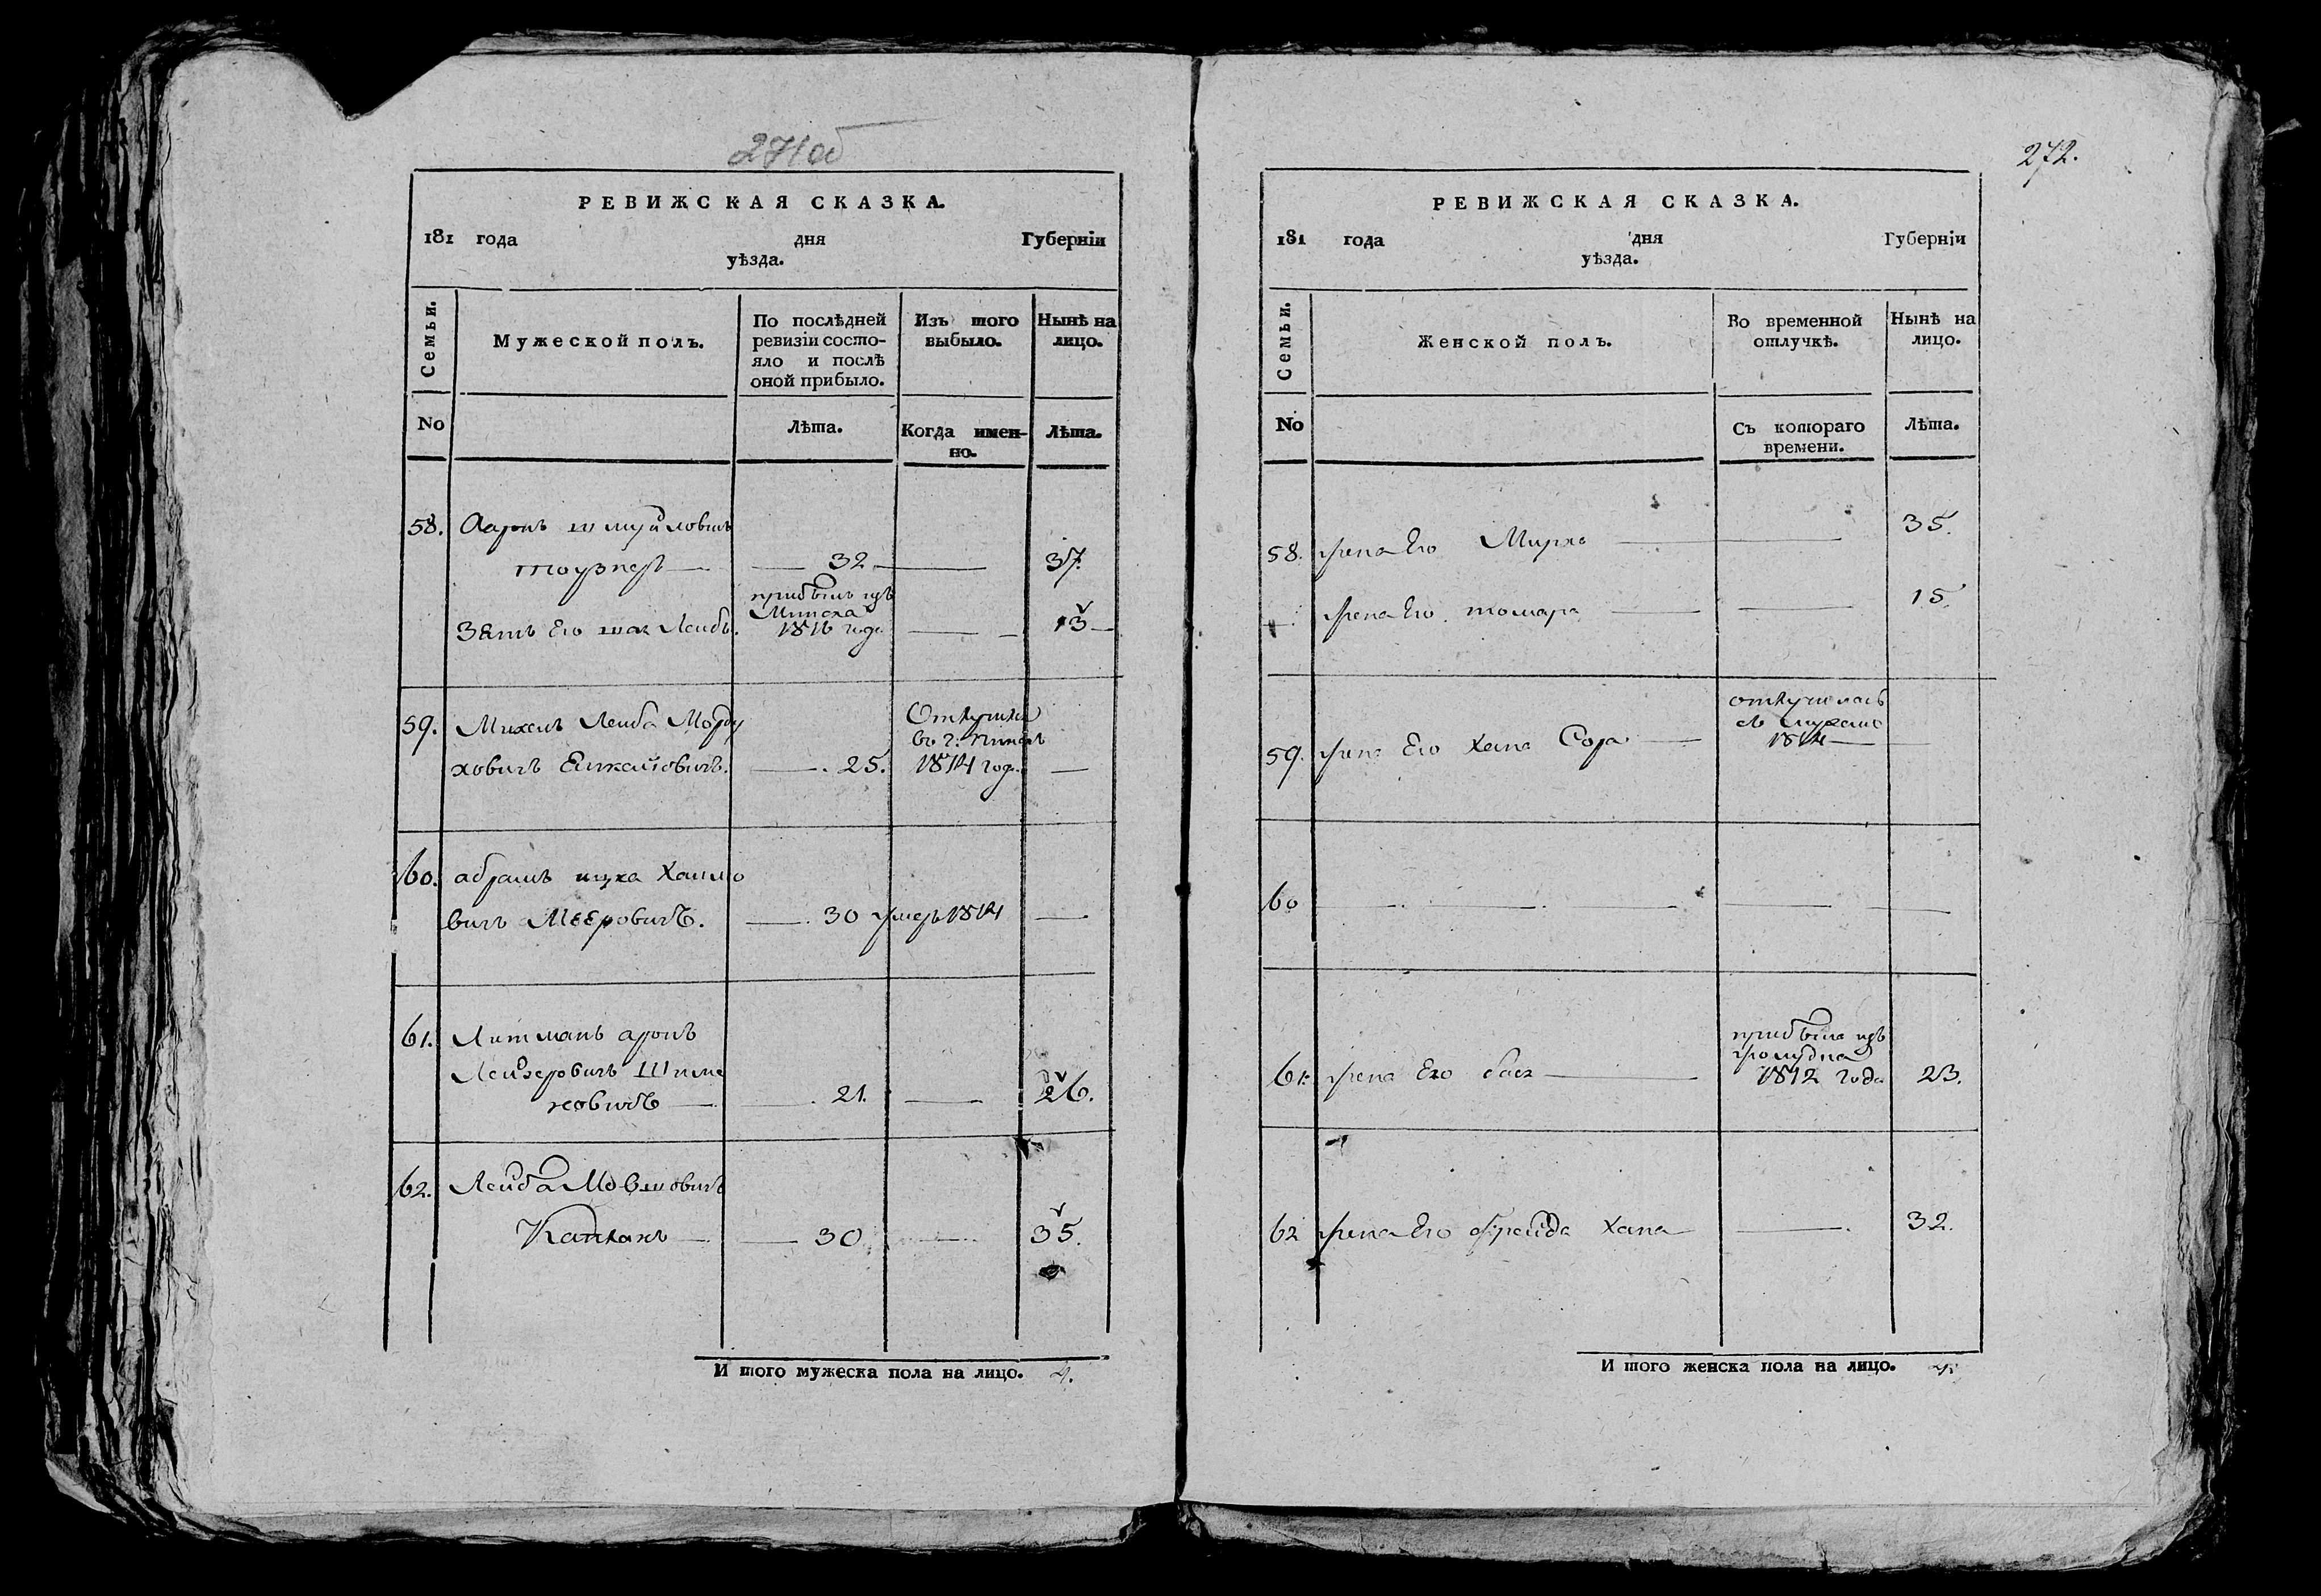 271об
РЕВИЖСКАЯ СКАЗКА.
181 года дня Губерніи
уѣзда.
Семьи.
Мужеской полъ.
По послѣдней ревизіи состо-
яло и послѣ
оной прибыло.
Изъ того
выбыло.
Нынѣ на
лицо.
No
Лѣта.
Когда имен-
но.
Лѣта.
58. Ааронъ шмуйловичъ
32 37.
прибылъ изъ
Минска
Зять Его Лейбъ. 1816 года 13
59. Михель Лейба Морду
ховичъ 25.
въ г:
1814 года
60. абрамъ ицка Хаимо
вичъ Мееровичъ. 30 умеръ 1814
61. Литманъ аронъ
Лейзеровичъ Шиме
новичъ 21. 26.
62. Лейба Мовшовичъ
Капланъ 30 35.
И того мужеска пола на лицо. 4.
272.
РЕВИЖСКАЯ СКАЗКА.
181 года дня Губерніи
уѣзда.
Семьи.
Женской полъ.
Во временной
отлучкѣ.
Нынѣ на
лицо.
No
Съ котораго
времени.
Лѣта.
58. жена Его Мирка 35.
жена Его томара 15.
59. жена Его хана Сора
отлучилась
съ мужемъ
1814
60
61. жена Его бася
прибыла изъ
1812 года 23.
62 жена Его фрейда хана 32.
И того женска пола на лицо. 4.